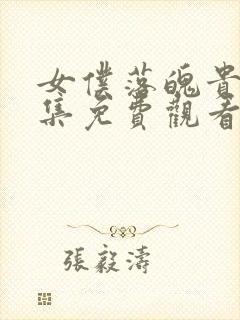 女僕落魄貴
集免費觀看
張毅濤